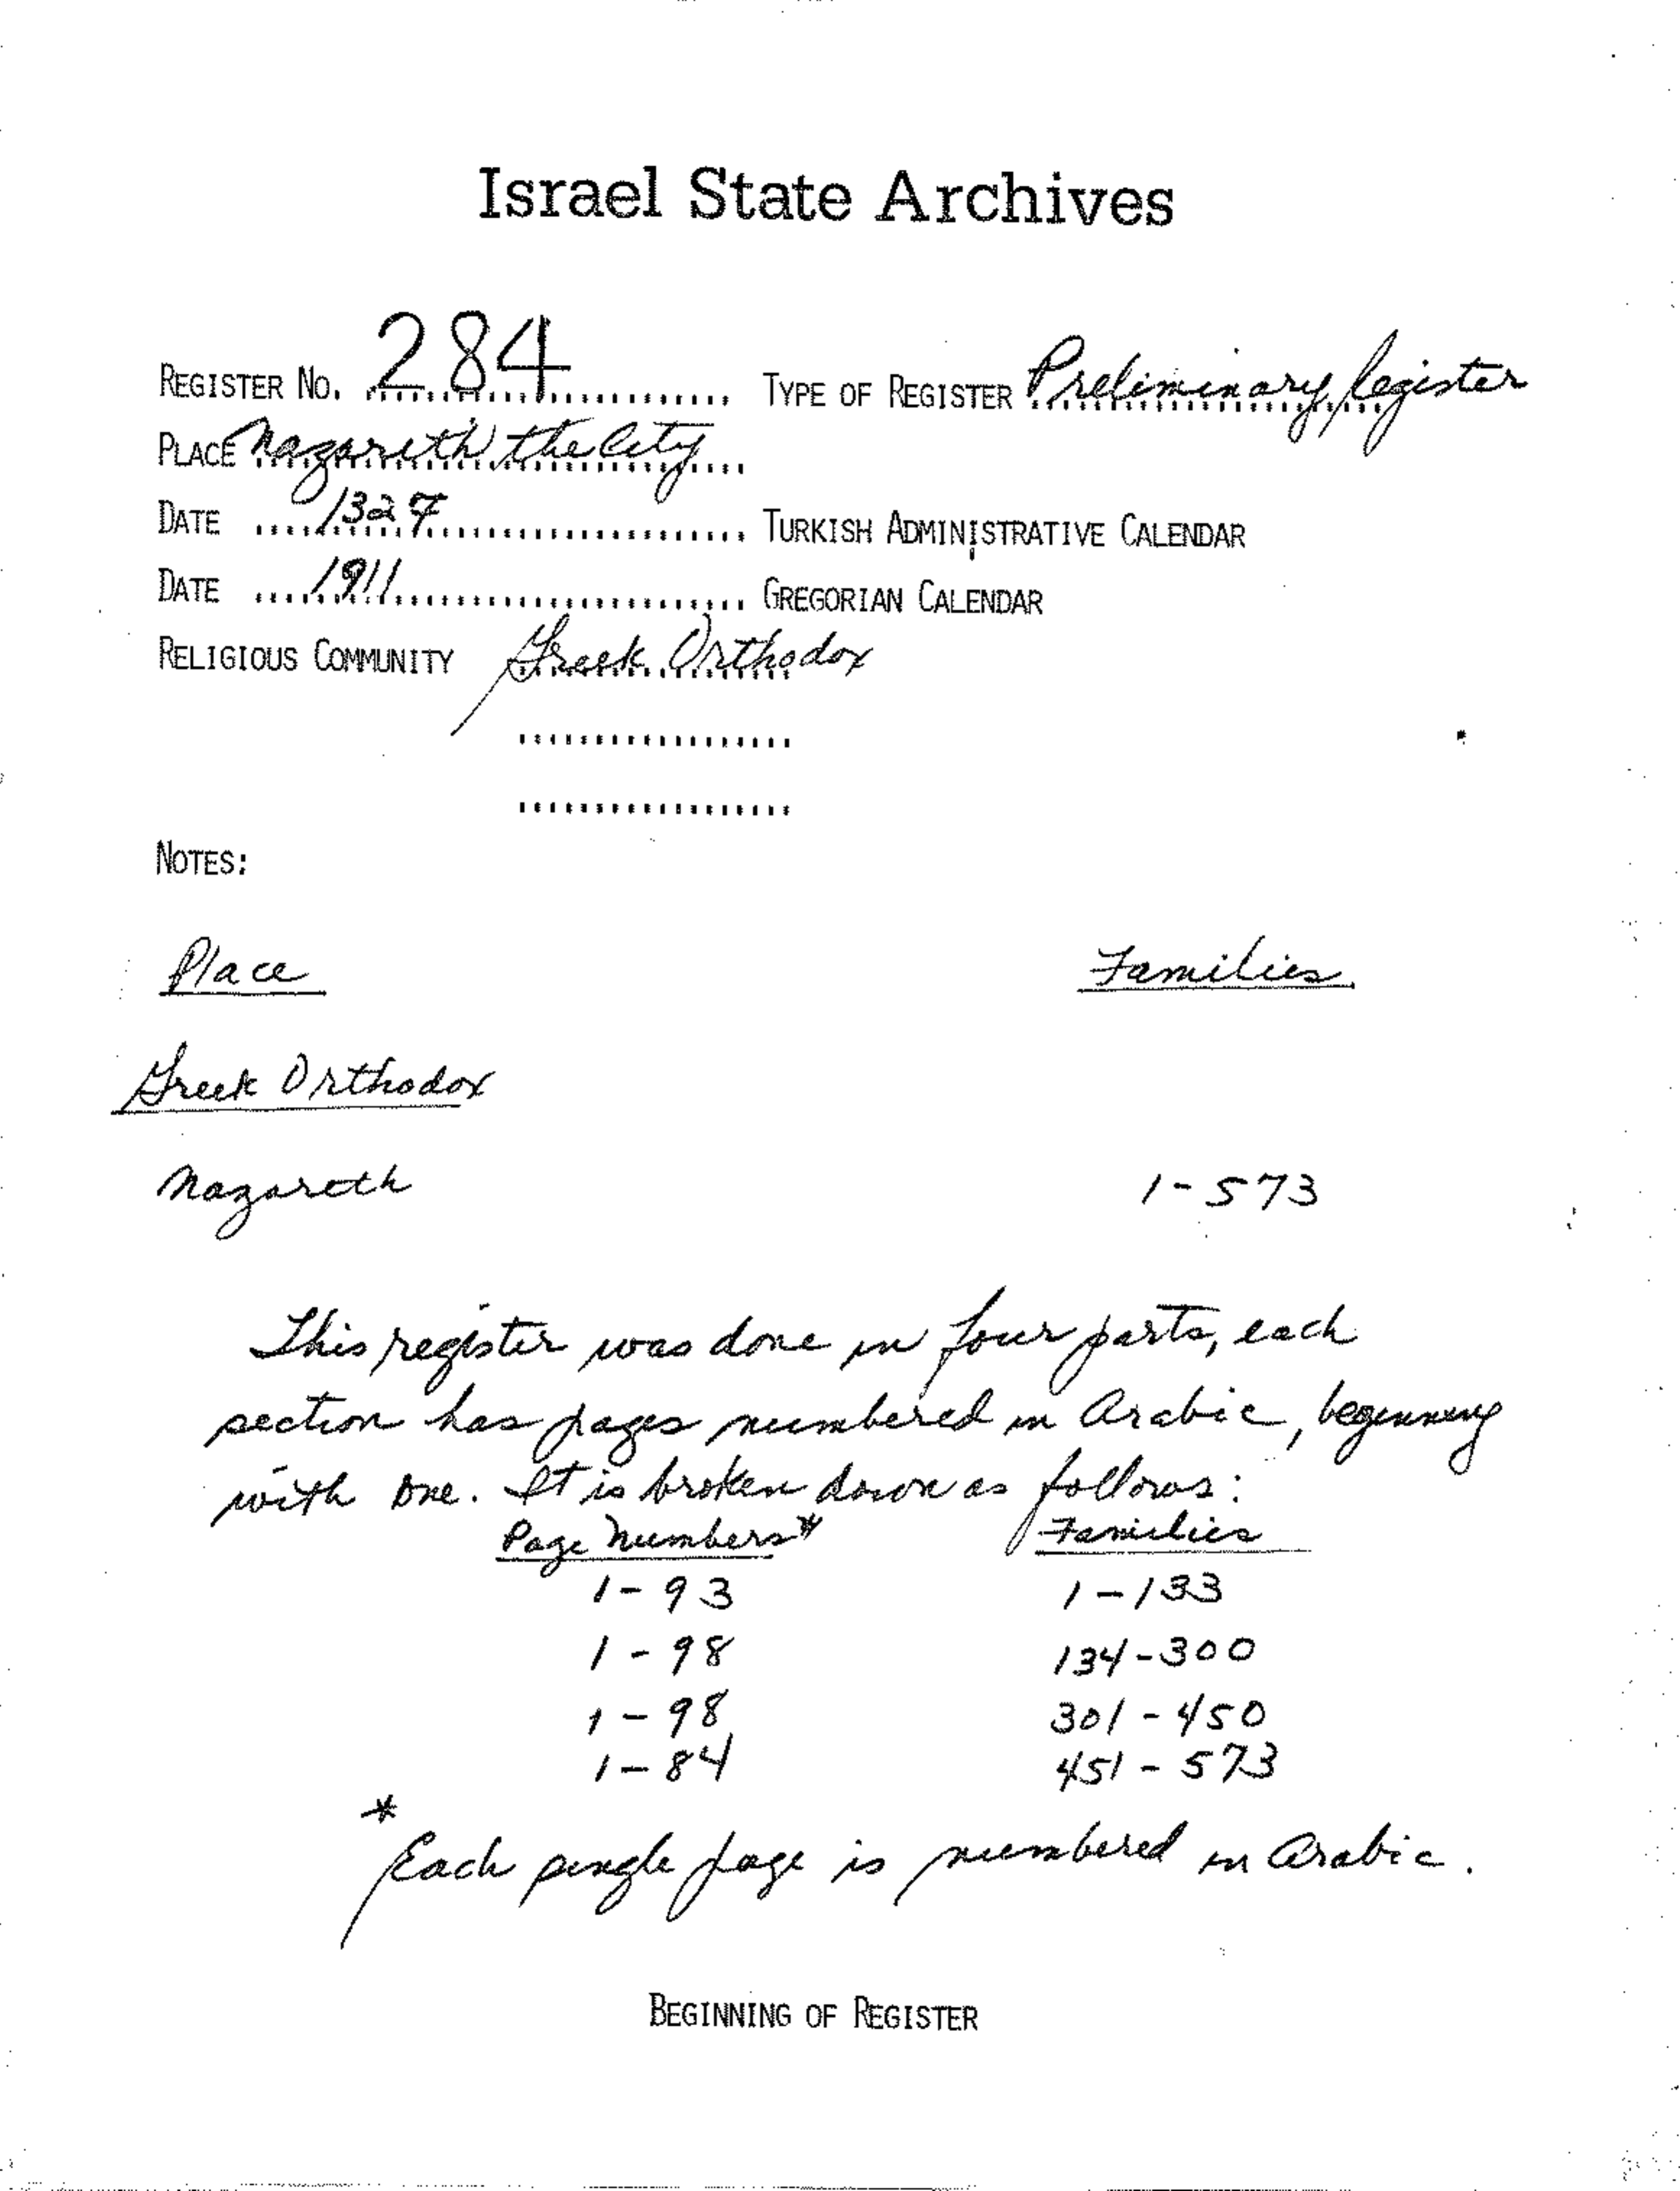 Israel State Archives
REGISTER NO. 284 TYPE OF REGISTER Preliminary Register
PLACE Nazareth the City
DATE 1327 TURKISH ADMINISTRATIVE CALENDAR
DATE 1911 GREGORIAN CALENDAR
RELIGIOUS COMMUNITY Greek Orthodox
NOTES:
Place Families
Greek Orthodox
Nazareth 1-573
This register was done in four parts, each
section has pages numbered in Arabic, beginning
with one. It is broken down as follows:
Page Numbers* Families
1-93 1-133
1-98 134-300
1-98 301-450
1-84 451-573
* Each single page is numbered in Arabic.
BEGINNING OF REGISTER